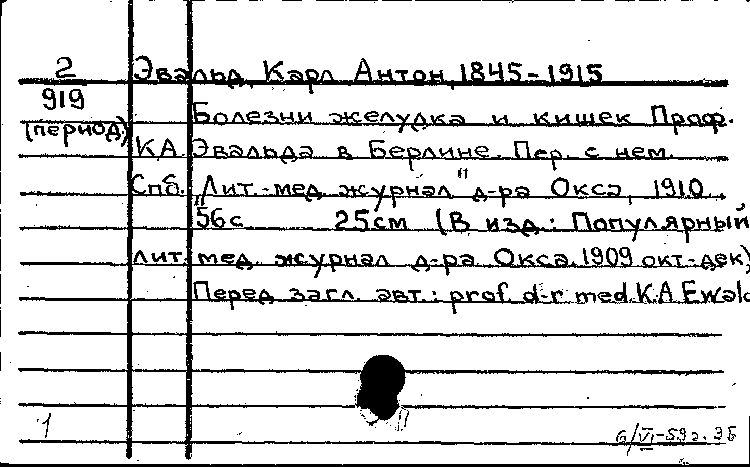 2 Эвальд, Карл Антон, 1845-1915
919
(период) Болезни желудка и кишек Проф.
К.А. Эвальда в Берлине. Пер. с нем.
Спб. "Лит.-мед. журнал" д-ра Окса, 1910.
56с 25см (В изд.: Популярный
лит. мед. журнал д-ра Окса. 1909 окт-дек)
Перед загл. авт.: prof. d-r med. K.A Ewald
1 6/VI-59г.